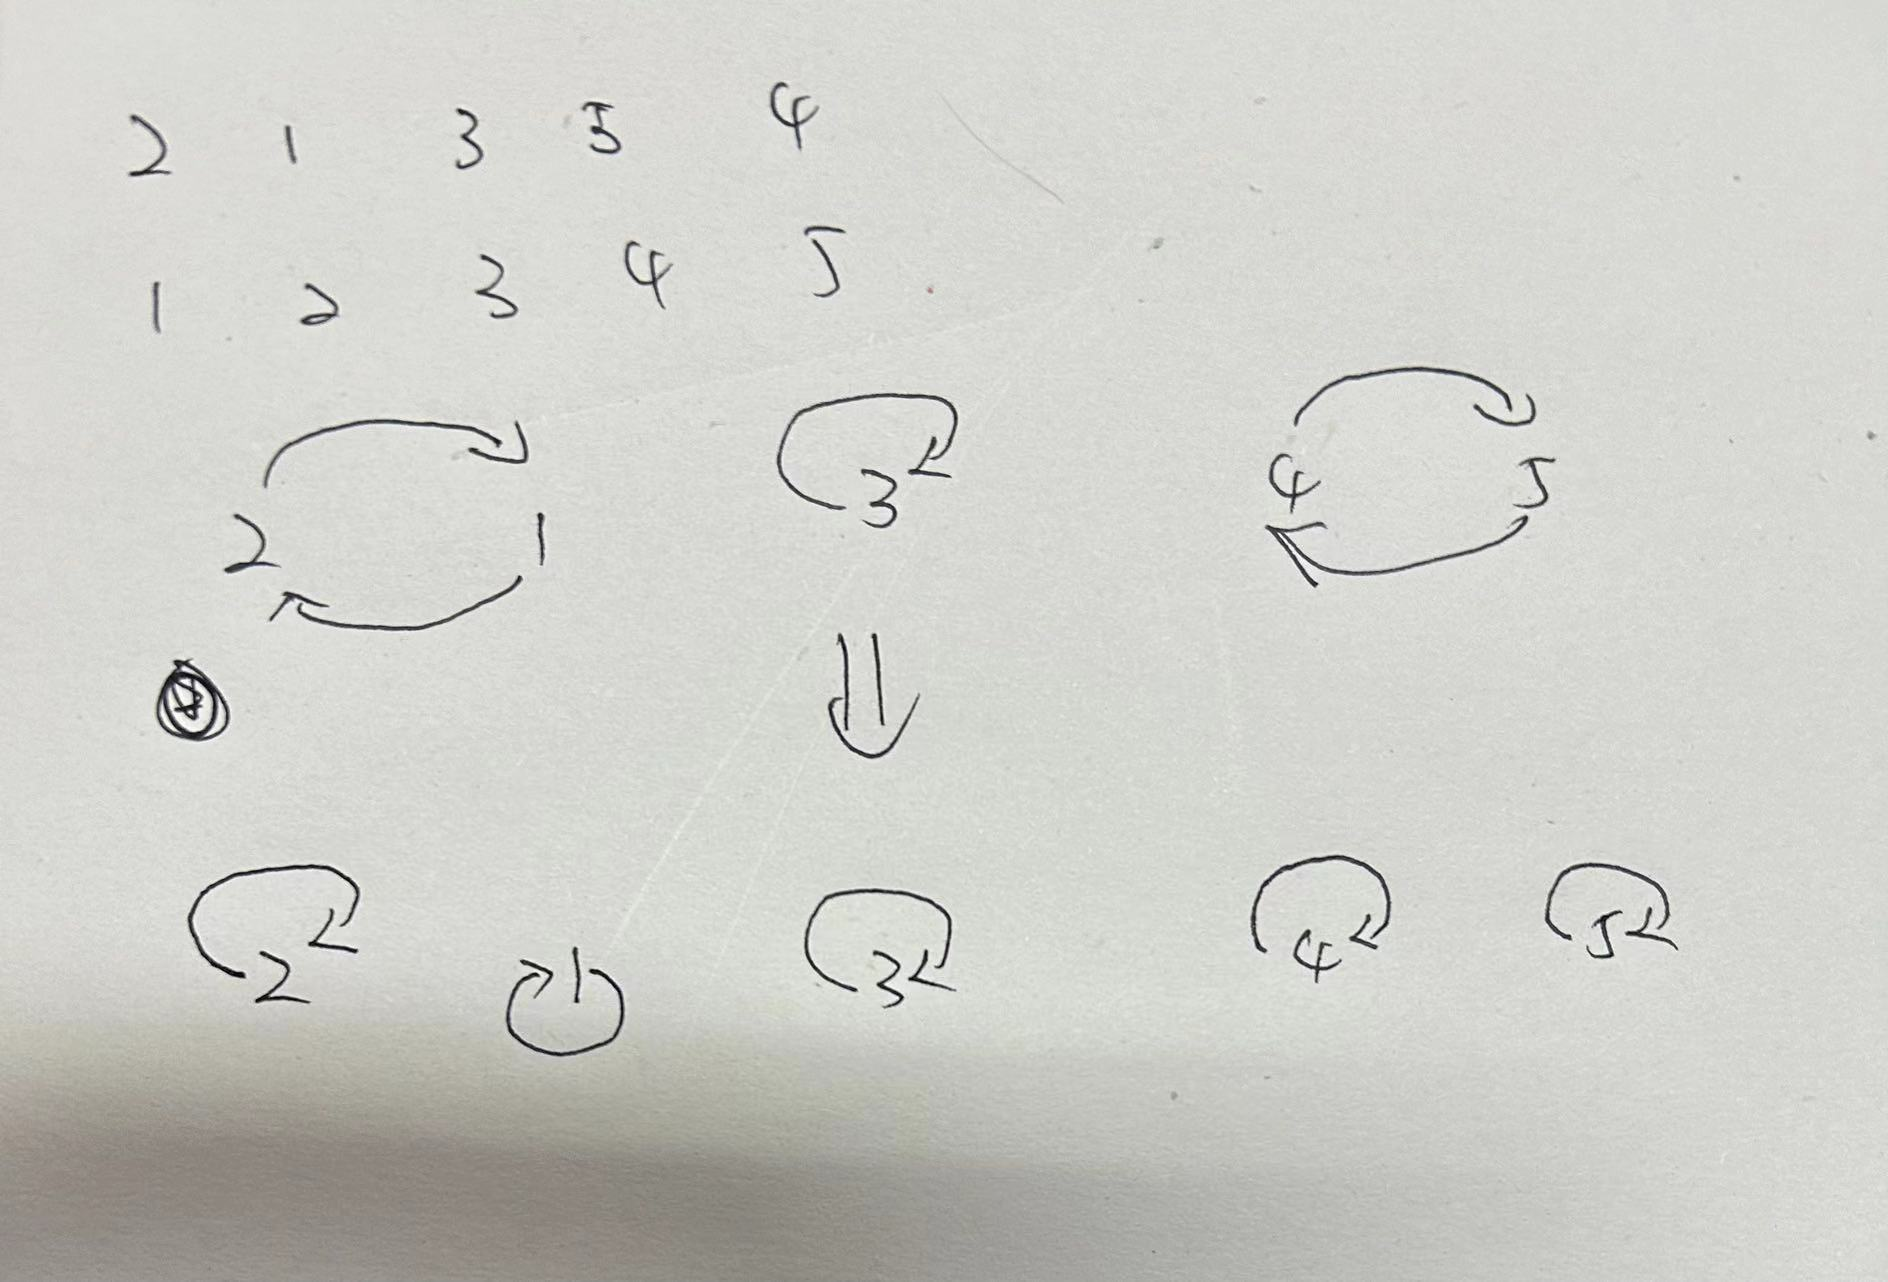 2 1 3 5 4
1 2 3 4 5
2 1 3 4 5
2 1 3 4 5